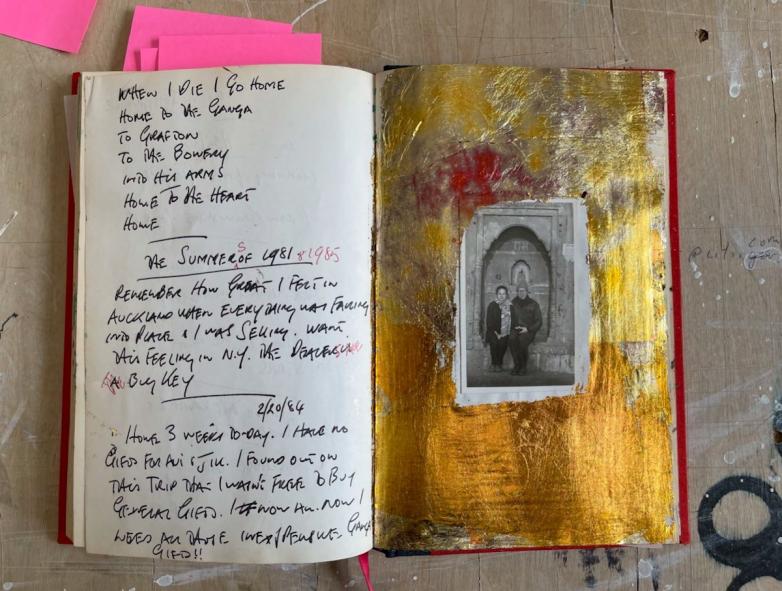 WHEN I DIE I GO HOME
HOME TO THE GANGA
TO GRAFTON
TO THE BOWERY
INTO HIS ARMS
HOME TO THE HEART
HOME
THE SUMMERS OF 1981 & 1985
REMEMBER HOW GREAT I FELT IN
AUCKLAND WHEN EVERYTHING WAS FALLING
INTO PLACE & I WAS SELLING. WANT
THIS FEELING IN N.Y. THE DEALER IS
A BUY KEY
2/20/84
HOME 3 WEEKS TO-DAY. I HAVE NO
GIFTS FOR AVI & JIK. I FOUND OUT ON
THIS TRIP THAT I WASN'T FREE TO BUY
GENERAL GIFTS. I NOW AM. NOW I
NEED ALL THOSE INEXPENSIVE GANGA
GIFTS!!